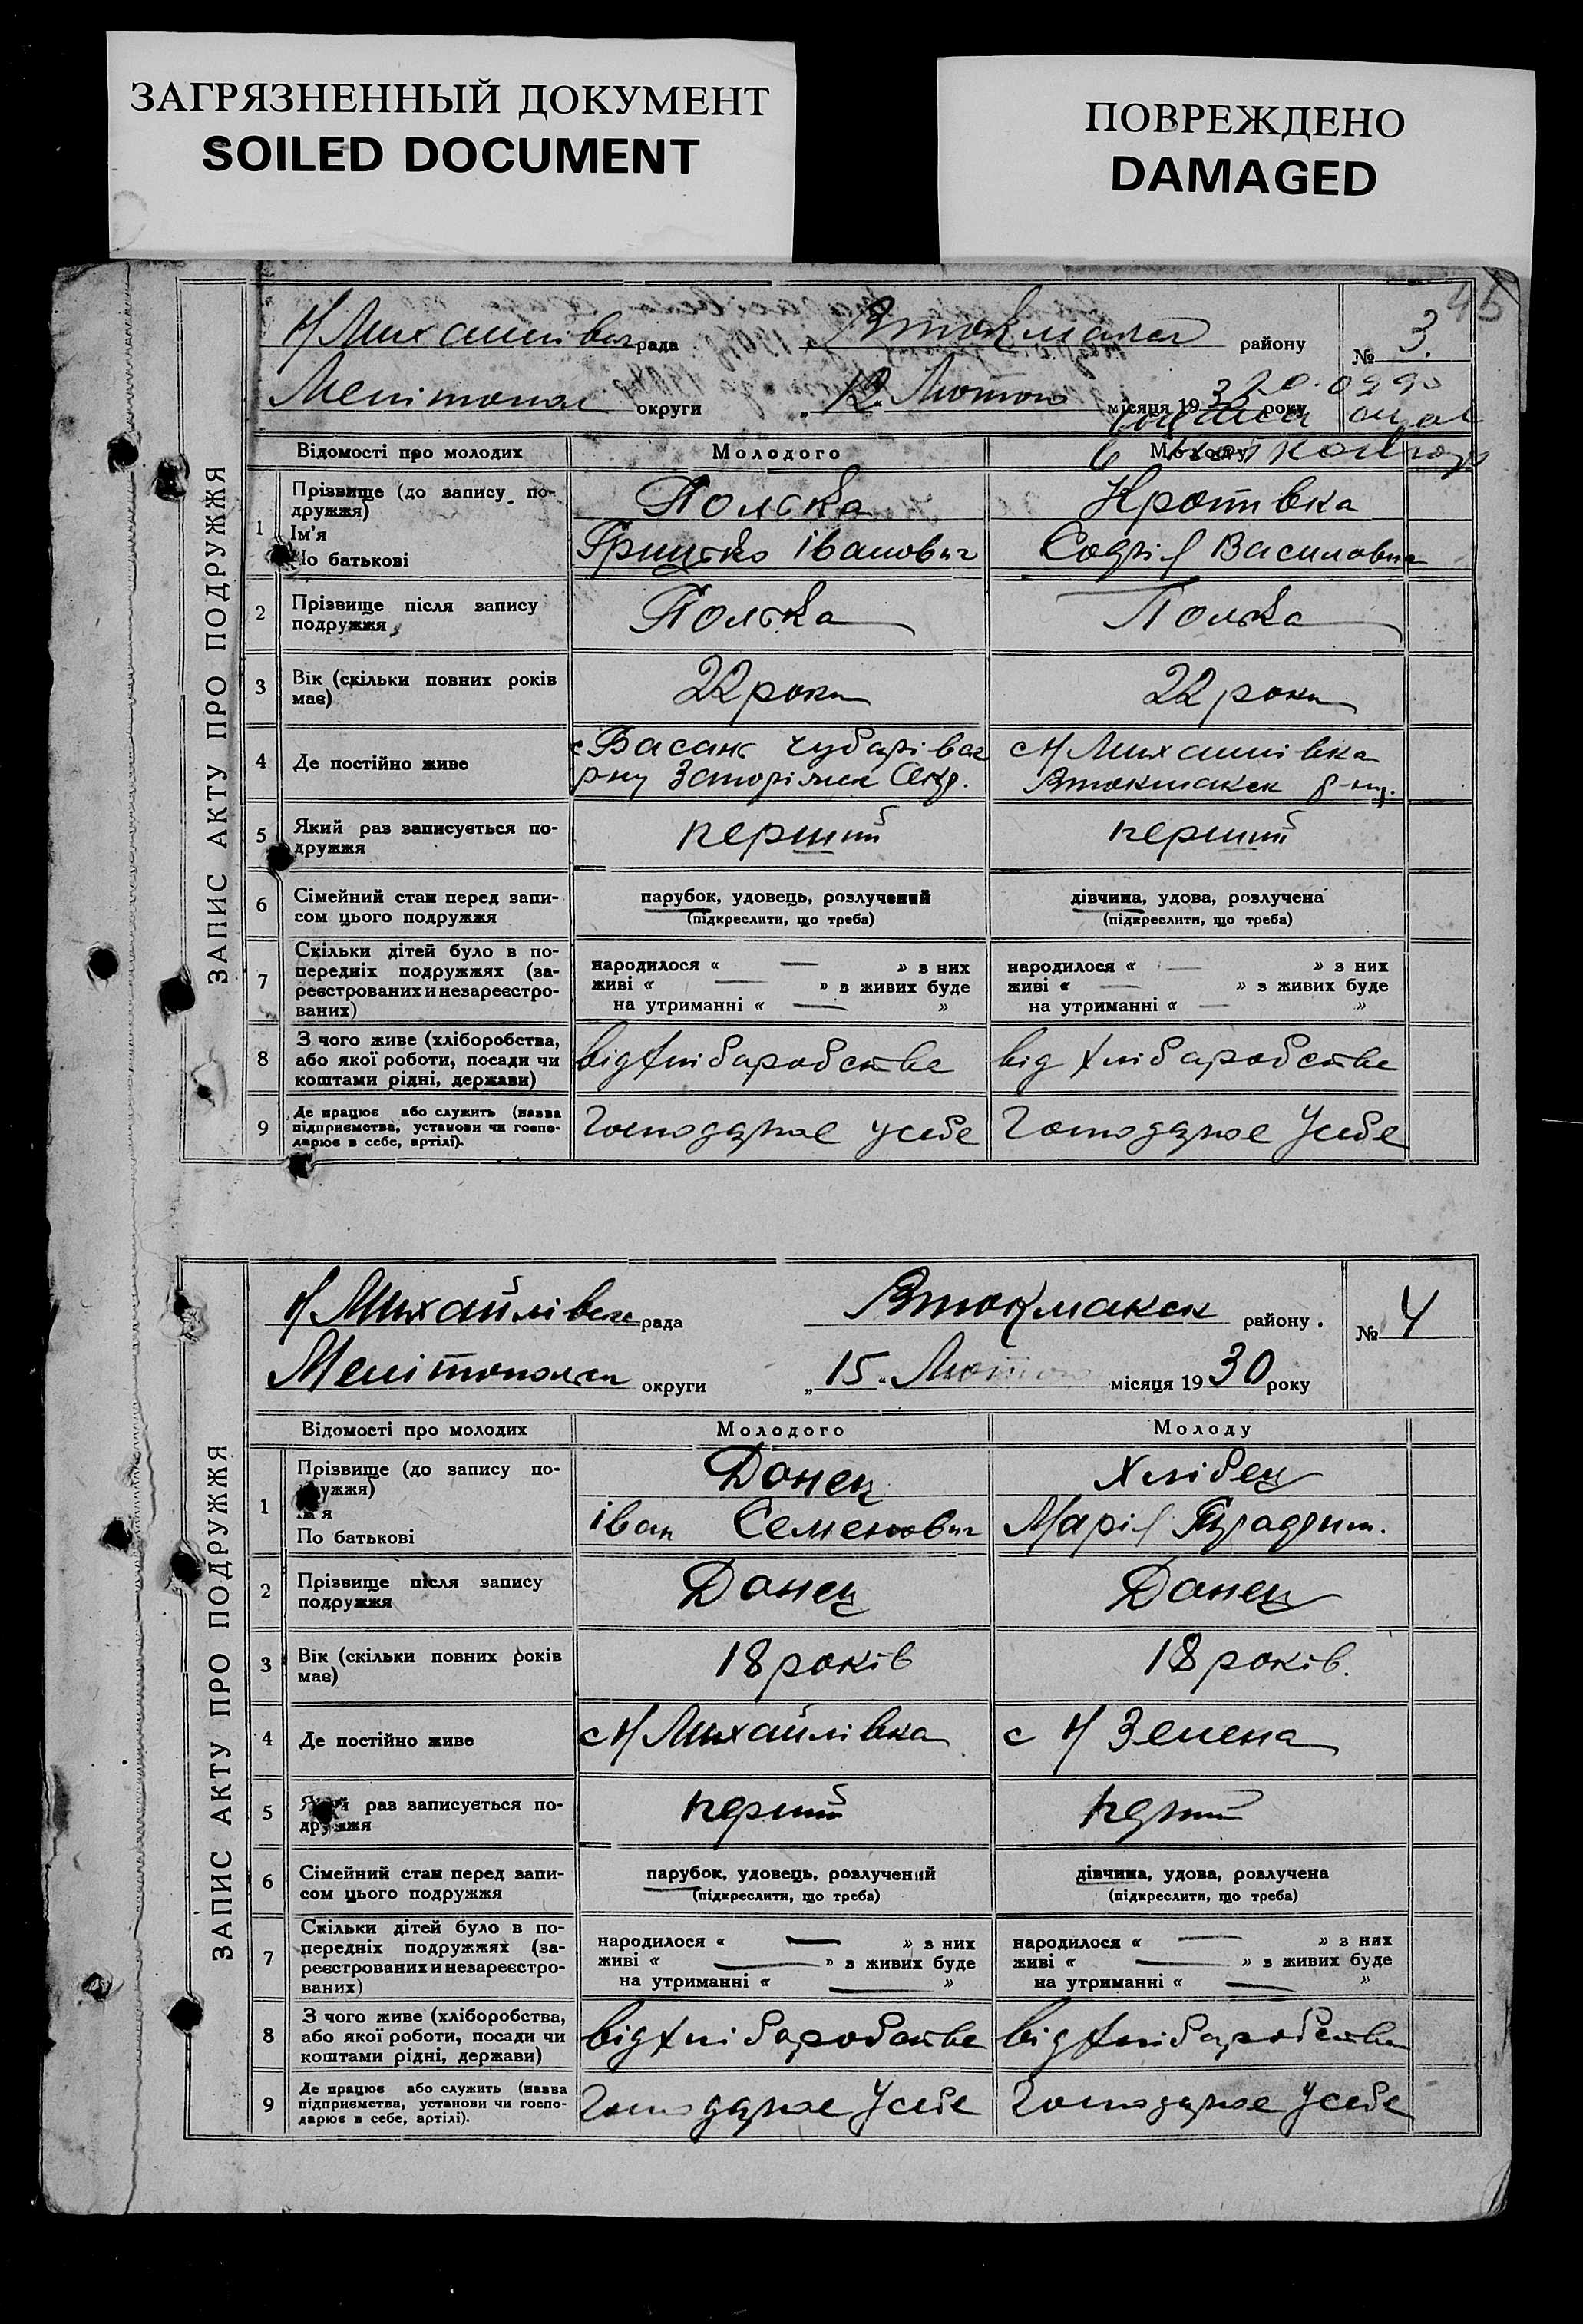 ЗАГРЯЗНЕННЫЙ ДОКУМЕНТ
SOILED DOCUMENT
ПОВРЕЖДЕНО
DAMAGED
45
ЗАПИС АКТУ ПРО ПОДРУЖЖЯ
Н/Михайлівск рада Втокмацьк району № 3.
Мелітопол округи „12“ Лютого місяця 1930 року
Відомості про молодих Молодого Молоду
1 Прізвище (до запису по-
дружжя)
Польска Кротівка
Ім'я
По батькові
Грицько Іванович Софія Василовна
2 Прізвище після запису
подружжя
Польска Польска
3 Вік (скільки повних років
має)
22 роки 22 роки
4 Де постійно живе
с Басань Чубарівск с Н/Михайлівка
р-ну Запоріжск Окр. Втокмакск р-ну.
5 Який раз записується по-
дружжя
перший перший
6 Сімейний стан перед запи-
сом цього подружжя
парубок, удовець, розлучений дівчина, удова, розлучена
(підкреслити, що треба) (підкреслити, що треба)
7 Скільки дітей було в по-
передніх подружжях (за-
реєстрованих и незареєстро-
ваних)
народилося « — » з них народилося « — » з них
живі « — » з живих буде живі « — » з живих буде
на утриманні « — » на утриманні « — »
8 З чого живе (хліборобства,
або якої роботи, посади чи
коштами рідні, держави)
від хліборобства від хліборобства
9 Де працює або служить (назва
підприємства, установи чи госпо-
дарює в себе, артілі).
Господарює у себе Господарює у себе
ЗАПИС АКТУ ПРО ПОДРУЖЖЯ
Н/Михайлівск рада Втокмакск району. № 4
Мелітопольск округи „15“ Лютого місяця 1930 року
Відомості про молодих Молодого Молоду
1 Прізвище (до запису по-
дружжя)
Донец Хлібец
Ім'я
По батькові
Іван Семенович Марія
2 Прізвище після запису
подружжя
Донец Донец
3 Вік (скільки повних років
має)
18 років 18 років.
4 Де постійно живе
с Н/Михайлівка с Н/Зелена
5 Який раз записується по-
дружжя
перший перший
6 Сімейний стан перед запи-
сом цього подружжя
парубок, удовець, розлучений дівчина, удова, розлучена
(підкреслити, що треба) (підкреслити, що треба)
7 Скільки дітей було в по-
передніх подружжях (за-
реєстрованих и незареєстро-
ваних)
народилося « — » з них народилося « — » з них
живі « — » з живих буде живі « — » з живих буде
на утриманні « — » на утриманні « — »
8 З чого живе (хліборобства,
або якої роботи, посади чи
коштами рідні, держави)
від хліборобства від хліборобства
9 Де працює або служить (назва
підприємства, установи чи госпо-
дарює в себе, артілі).
Господарює у себе Господарює у себе